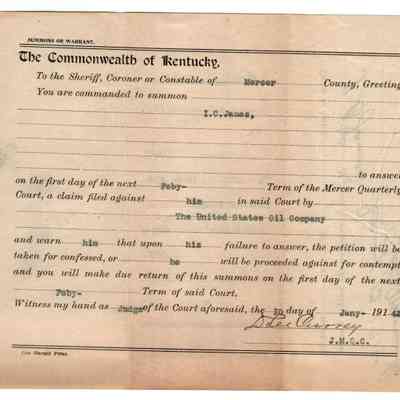 SUMMONS OR WARRANT.
The Commonwealth of Kentucky.
To the Sheriff, Coroner or Constable of Mercer County, Greeting
You are commanded to summon
I.C.James,
to answer
on the first day of the next Feby- Term of the Mercer Quarterly
Court, a claim filed against him in said Court by
The United States Oil Company
and warn him that upon his failure to answer, the petition will be
taken for confessed, or he will be proceeded against for contempt
and you will make due return of this summons on the first day of the next
Feby- Term of said Court.
Witness my hand as Judge of the Court aforesaid, the day of Jany- 191
J.M.Q.C.